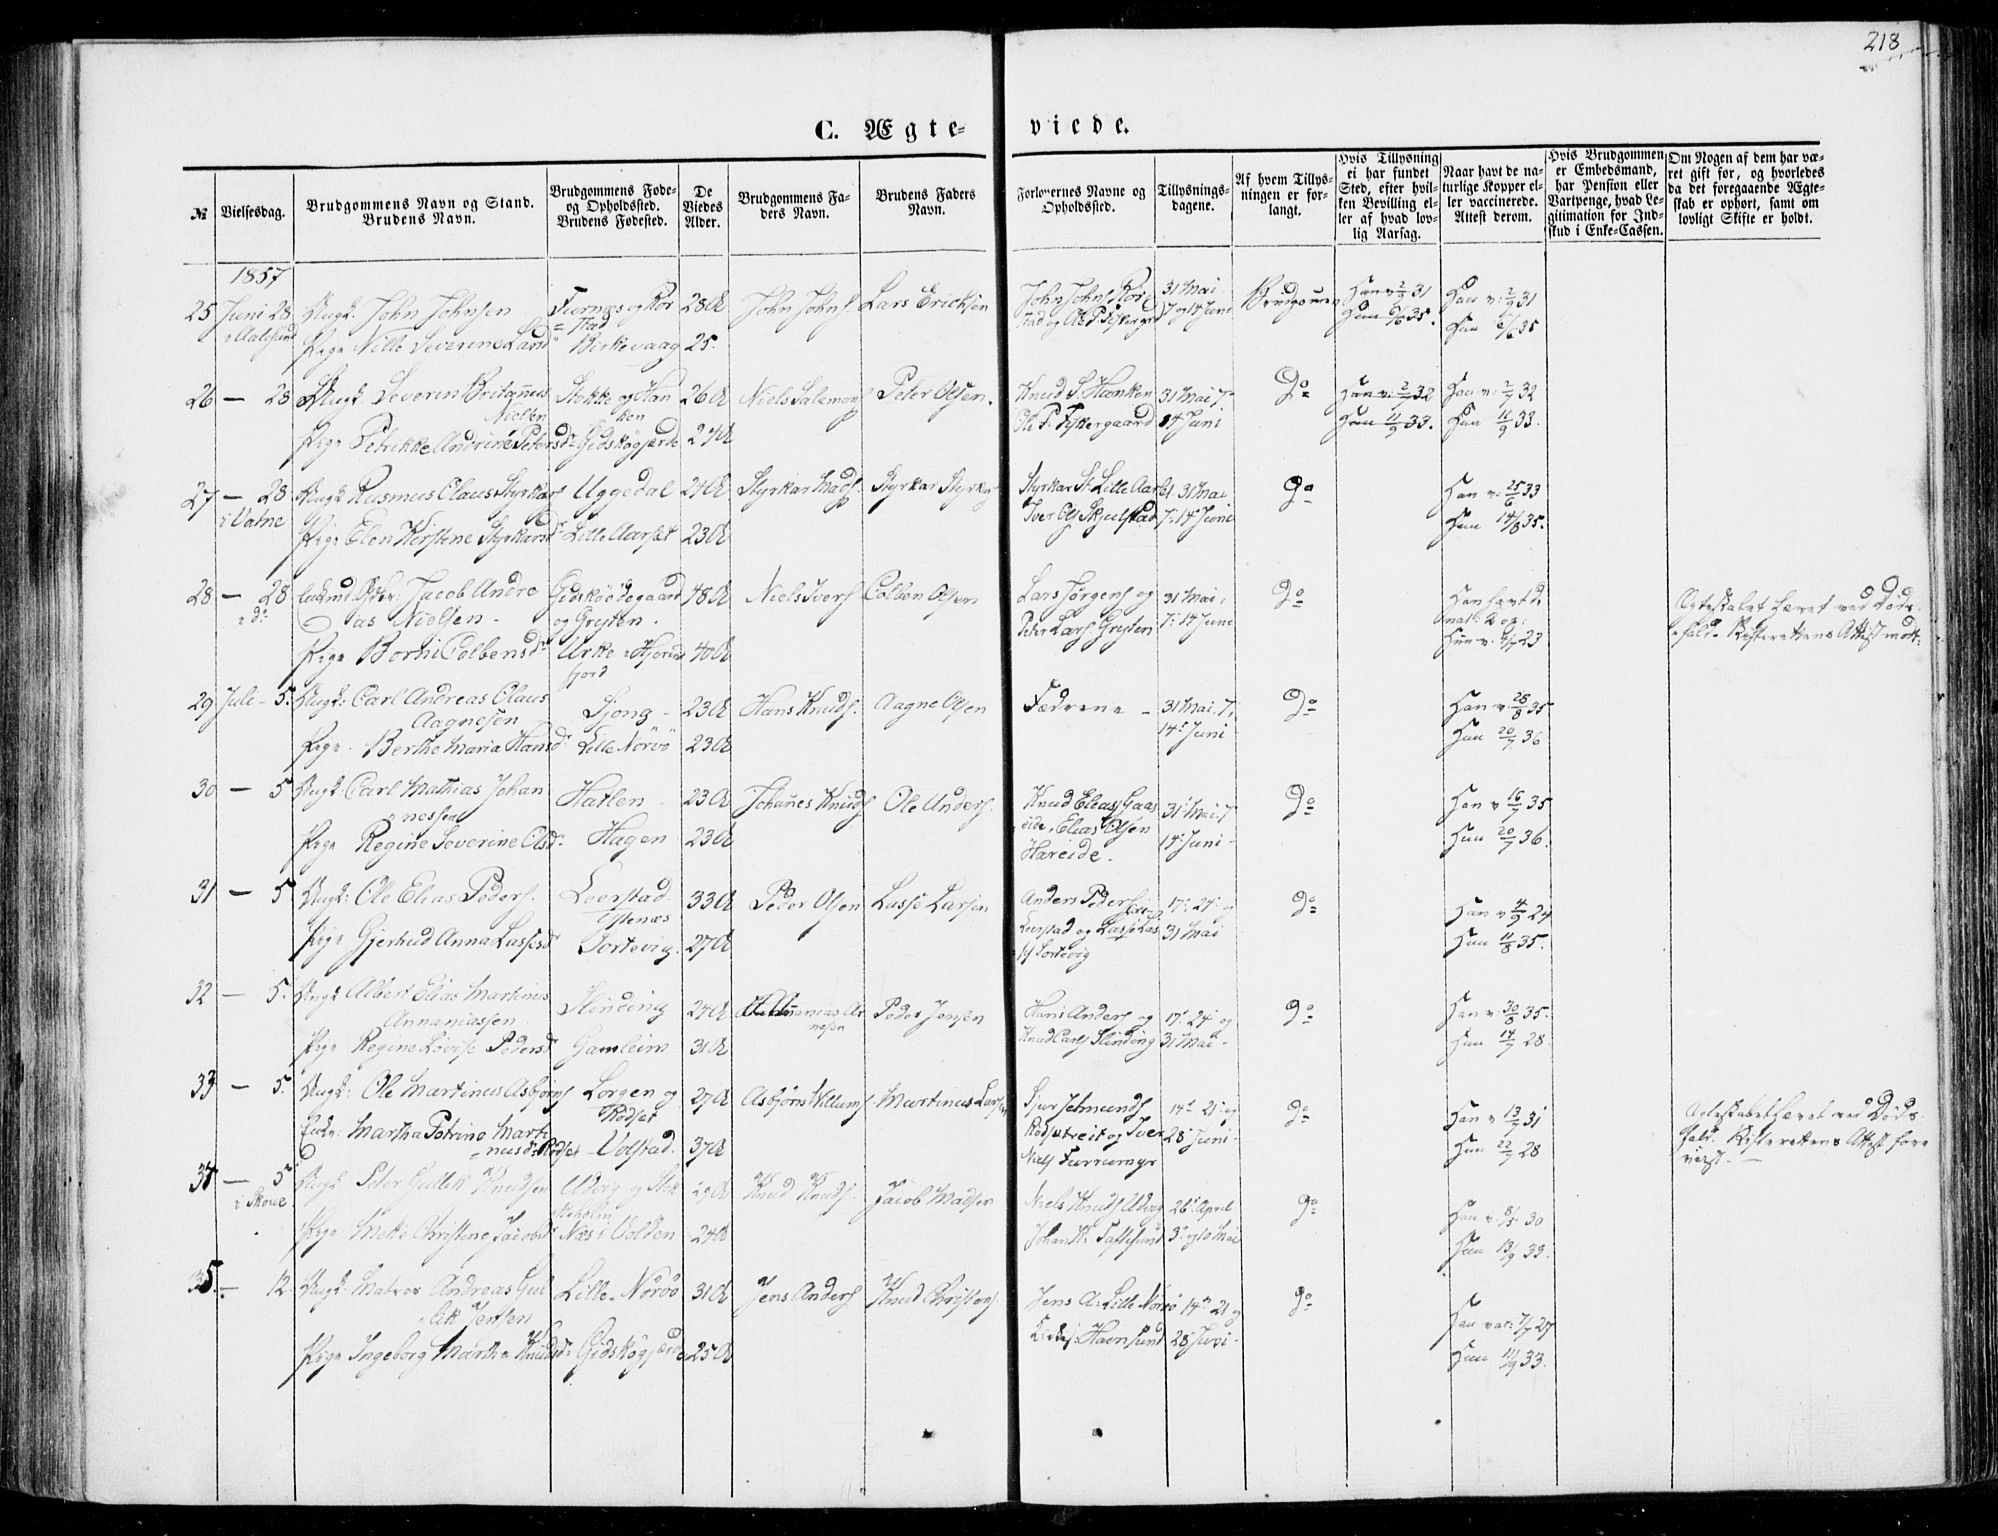 218
C. Ægte-
viede.
№
Vielsesdag.
Brudgommens Navn og Stand.
Brudens Navn.
Brudgommens Føde-
og Opholdssted.
Brudens Fødested.
De
Viedes
Alder.
Brudgommens Fa-
ders Navn.
Brudens Faders
Navn.
Forlovernes Navne og
Opholdssted.
Tillysnings-
dagene.
Af hvem Tillys-
ningen er for-
langt.
Hvis Tillysning
ei har fundet
Sted, efter hvil-
ken Bevilling el-
ler af hvad lov-
lig Aarsag.
Naar havt de na-
turlige Kopper el-
ler vaccinerede.
Attest derom.
Hvis Brudgommen
er Embedsmand,
har Pension eller
Vartpenge, hvad Le-
gitimation for Ind-
skud i Enke-Cassen.
Om Nogen af dem har væ-
ret gift før, og hvorledes
da det foregaaende Ægte-
skab er ophørt, samt om
lovligt Skifte er holdt.
1857
25 Juni 28 Ungk. John Johnsen
Furnæs og Ror
= stad
28 A John Johns. Lars Ericksen
John Johns Ror
stad og Ole P. Fiskergrd
31 Mai
7 og 14 Juni
Brudgommen
Han v 2/9 31
Hun 6/6 35.
Han v. 2/9 31
Hun 6/6 35
i Aalesund Pige Nille Severine Larsd Birkevaag 25.
26 — 28 Ungk. Severin Britanus
Nielsen
Stokke og Han
ken
26 A Niels Salomons Peter Olsen.
Knud S. Hanken
Ole P. Fiskergaard
31 Mai 7
14 Juni
Do
Han v. 2/7 32
Hun 11/9 33.
Han v. 2/7 32
Hun 11/9 33.
Pige Petrikke Andrine Petersd. Gidskøgjerde 24 A
27 — 28 Ungk Rasmus Claus Styrkars Uggedal 24 A Styrkar Mads. Styrkar Styrkars
Styrkar St. Lille Aarset
Iver Ols Skjelstad
31 Mai
7. 14 Juni
Do
Han v. 25/6 33
Hun 14/8 35.
i Vatne Pige Elen Kirstene Styrkarsd. Lille Aarset 23 A
28 — 28 Jacob Andre
as Nielsen.
Gidskø Ødegaard
og Grytten.
48 A Niels Ivers Colben Olsen
Lars Jørgens og
Peter Lars Grytten
31 Mai,
7. 14 Juni
Do
Hun v. 4/7 23
i do Pige Borni Colbensd. Urke i Hjorund
fjord
40 A
Ægteskabet hævet ved Døds
fald. Skifterettens Attest mott.
29 Juli - 5. Ungk: Carl Andreas Olaus
Aagnesen
Sjong - 23 A Hans Knuds. Aagne Olsen
Fædrene - 31 Mai. 7,
14 Juni
Do
Han v. 28/8 35
Hun 20/7 36
Pige. Berthe Maria Hansd. Lille Nørvø 23 A
30 — 5 Ungk: Carl Mathias Johan
nessen
Hatlen - 23 A Johanes Knuds Ole Anders.
Knud Elias Gaas
eide, Elias Olsen
Hareide.
31 Mai. 7
14. Juni -
Do
Han v 16/7 35
Hun 20/7 36.
Pige Regine Severine Olsd. Hagen 23 A
31 — 5 Ungk: Ole Elias Peders. Leerstad
Ystenæs
33 A Peder Olsen Lasse Larsen
Anders Peders
Leerstad og Lasse Las
Sortevig
17. 24. og
31 Mai
Do
Han v 4/9 24
Hun 11/8 35.
Pige Gjertrud Anna Lassesd. Sortevig. 27 A
32 — 5. Ungk Albert Elias Martinus
Annaniassen
Slinding 24 A Annanias Ar
nesen
Peder Jensen
Hans Anders og
Knud Carls Slinding
17. 24. og
31 Mai -
Do
Han v. 30/8 35.
Hun 14/7 28
Pige Regine Lovise Pedersd Gamleim 31 A
33 — 5. Ungk: Ole Martinus Asbjørns Lorgen og
Rødset
27 A Asbjørn Willums. Martinus Larsen
Sjur Jetmunds
Rødsetreit og Iver
Niels Furremyr
14. 21. og
28 Juni -
Do
Han v 13/7 31
Hun 22/7 28
Enke: Martha Petrine Marti
nusd. Rødset
Volstad. 37 A
Ægteskabet hævet ved Døds
fald. Skifterettens Attest fore
viist.
34 — 5 Ungk Peter Gullik Knudsen Udvig og Stok
29 A Knud Knuds. Jacob Madsen
Niels Knuds Udvig
Johan K. Taftesund
26. April
3. og 10 Mai
Do
Han v. 8/5 30
Hun 13/9 33.
i Skoue Pige Mette Christine Jacobsd Næs i Volden 24 A
35 - 12 Ungk. Matros Andreas Gul
lik Jensen
Lille - Nørvø 31 A Jens Anders Knud Christens.
Jens A. Lille Nørvø
Havnsund
14. 21 og
28 Juni -
Do
Han vac. 7/7 27
Hun 11/9 33.
Pige Ingeborg Martha Knudsd. Gidskøgjærde 25 A